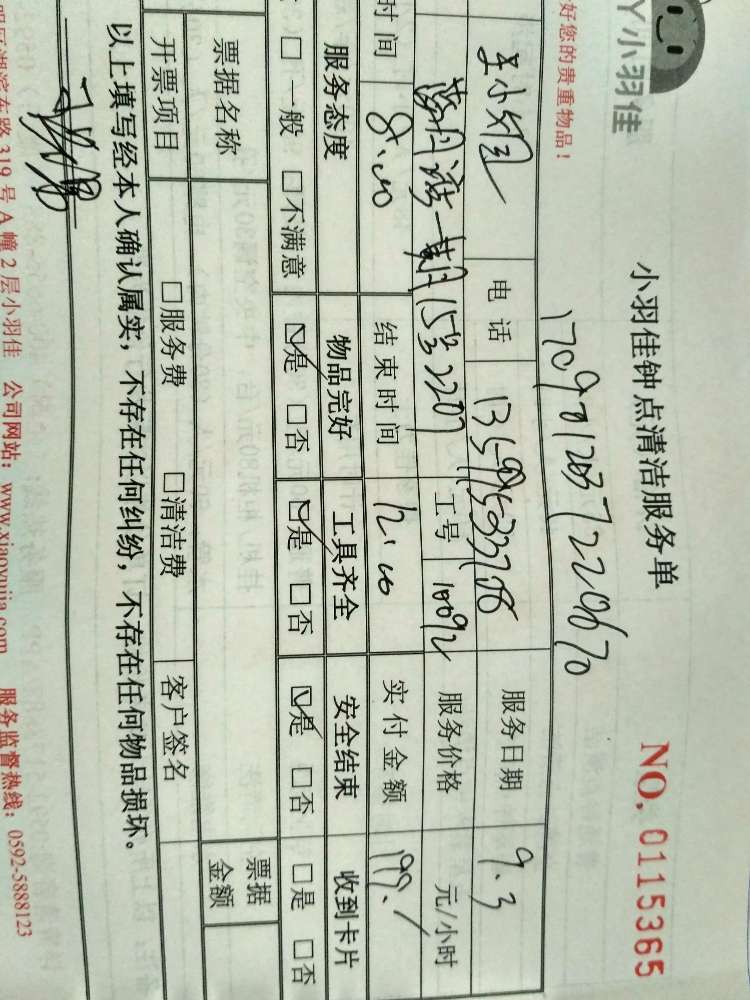 丫小羽佳
小羽佳钟点清洁服务单
NO. 0115365
好您的贵重物品！
电话 服务日期 9.3
工号 10092 服务价格 元/小时
时间 8:00 结束时间 12:00 实付金额 199.1
服务态度 物品完好 工具齐全 安全结束 收到卡片
□一般 □不满意 ☑是 □否 ☑是 □否 ☑是 □否 □是 □否
票据名称 票据金额
开票项目 □服务费 □清洁费 客户签名
以上填写经本人确认属实，不存在任何纠纷，不存在任何物品损坏。
明区湖滨东路 319 号 A 幢 2 层小羽佳 公司网站：www.xiaoyujia.com 服务监督热线：0592-5888123